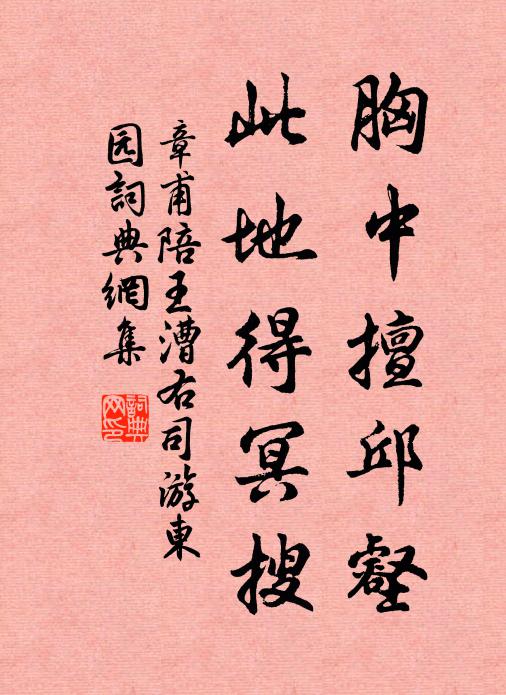 胸中擅邱壑
此地得冥搜
章甫陪王漕右司游東
园詞典網集
詞典
网印